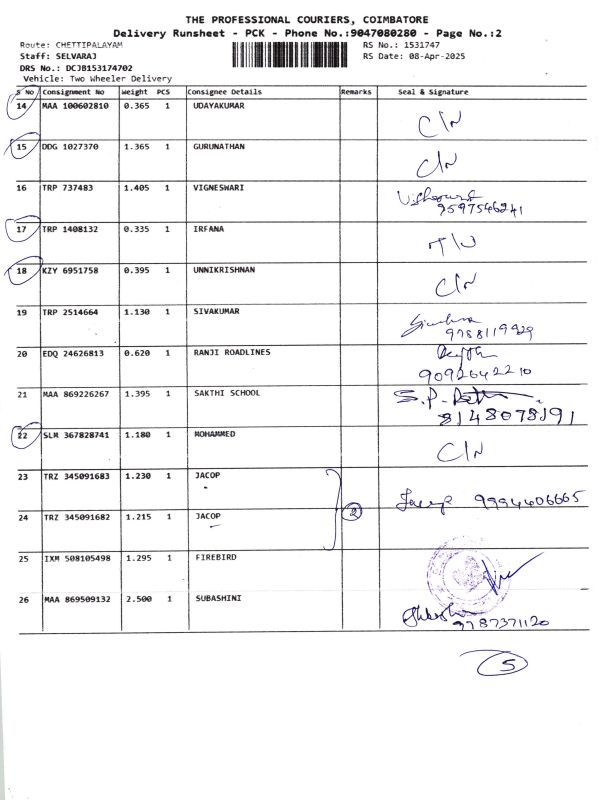 THE PROFESSIONAL COURIERS, COIMBATORE
Delivery Runsheet - PCK - Phone No.:9047080280 - Page No.:2
Route: CHETTIPALAYAM RS No.: 1531747
Staff: SELVARAJ RS Date: 08-Apr-2025
DRS No.: DCJB153174702
Vehicle: Two Wheeler Delivery
S No Consignment No Weight PCS Consignee Details Remarks Seal & Signature
14 MAA 100602810 0.365 1 UDAYAKUMAR C/N
15 DDG 1027370 1.365 1 GURUNATHAN C/N
16 TRP 737483 1.405 1 VIGNESWARI
9597546241
17 TRP 1408132 0.335 1 IRFANA
18 KZY 6951758 0.395 1 UNNIKRISHNAN C/N
19 TRP 2514664 1.130 1 SIVAKUMAR
9788119929
20 EDQ 24626813 0.620 1 RANJI ROADLINES
9092642210
21 MAA 869226267 1.395 1 SAKTHI SCHOOL S.P.
8148078191
22 SLM 367828741 1.180 1 MOHAMMED C/N
23 TRZ 345091683 1.230 1 JACOP
2 9994406665
24 TRZ 345091682 1.215 1 JACOP
25 IXM 508105498 1.295 1 FIREBIRD
26 MAA 869509132 2.500 1 SUBASHINI
9787371120
5